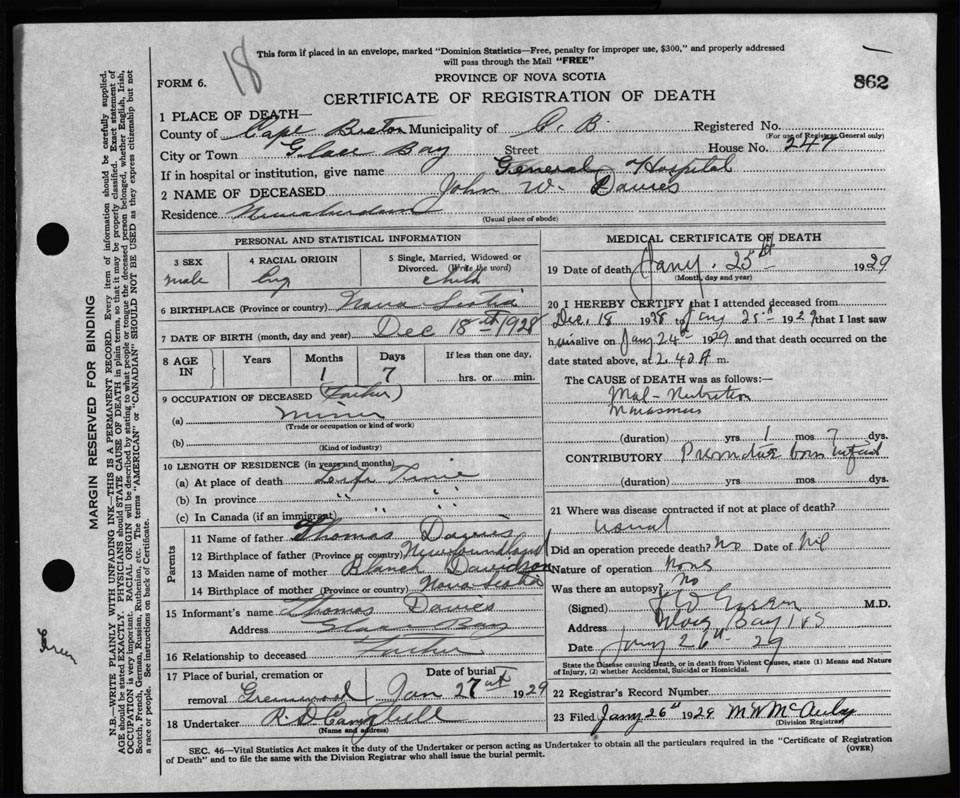 18
This form if placed in an envelope, marked "Dominion Statistics—Free, penalty for improper use, $300," and properly addressed
will pass through the Mail "FREE"
FORM 6.
PROVINCE OF NOVA SCOTIA
862
CERTIFICATE OF REGISTRATION OF DEATH
1 PLACE OF DEATH—
County of Cape Breton Municipality of C. B. Registered No.
(For use of Registrar General only)
City or Town Glace Bay Street House No. 247
If in hospital or institution, give name General Hospital
2 NAME OF DECEASED John W. Davies
Residence
(Usual place of abode)
PERSONAL AND STATISTICAL INFORMATION
3 SEX male
4 RACIAL ORIGIN Eng
5 Single, Married, Widowed or Divorced. (Write the word) child
6 BIRTHPLACE (Province or country) Nova Scotia
7 DATE OF BIRTH (month, day and year) Dec 18th 1928
8 AGE IN Years Months 1 Days 7 If less than one day, hrs. or min.
9 OCCUPATION OF DECEASED (Father)
(a) miner
(Trade or occupation or kind of work)
(b)
(Kind of industry)
10 LENGTH OF RESIDENCE (in years and months)
(a) At place of death Life Time
(b) In province " "
(c) In Canada (if an immigrant) " "
Parents
11 Name of father Thomas Davies
12 Birthplace of father (Province or country) Newfoundland
13 Maiden name of mother Blanch Davidson
14 Birthplace of mother (Province or country) Nova Scotia
15 Informant's name Thomas Davies
Address Glace Bay
16 Relationship to deceased Father
17 Place of burial, cremation or removal Greenwood
Date of burial Jan 27 1929
18 Undertaker R. D. Campbell
(Name and address)
MEDICAL CERTIFICATE OF DEATH
19 Date of death Jany. 25th 1929
(Month, day and year)
20 I HEREBY CERTIFY that I attended deceased from
Dec. 18 1928 to Jany 25th 1929 that I last saw
him alive on Jany 24th 1929 and that death occurred on the
date stated above, at 2.42 A m.
The CAUSE OF DEATH was as follows:—
Mal-Nutrition
Marasmus
(duration) yrs 1 mos 7 dys.
CONTRIBUTORY Premature born infant
(duration) yrs. mos. dys.
21 Where was disease contracted if not at place of death?
Did an operation precede death? No Date of Nil
Nature of operation None
Was there an autopsy? No
(Signed) M.D.
Address Glace Bay N S
Date Jany 26th 29
State the Disease causing Death, or in death from Violent Causes, state (1) Means and Nature of
Injury, (2) whether Accidental, Suicidal or Homicidal.
22 Registrar's Record Number
23 Filed Jany 26th 1929 M W McAulay
(Division Registrar)
SEC. 46—Vital Statistics Act makes it the duty of the Undertaker or person acting as Undertaker to obtain all the particulars required in the "Certificate of Registration
of Death" and to file the same with the Division Registrar who shall issue the burial permit.
(OVER)
MARGIN RESERVED FOR BINDING
N.B.—WRITE PLAINLY WITH UNFADING INK—THIS IS A PERMANENT RECORD. Every item of information should be carefully supplied.
AGE should be stated EXACTLY. PHYSICIANS should STATE CAUSE OF DEATH in plain terms, so that it may be properly classified. Exact statement of
OCCUPATION is very important. RACIAL ORIGIN will be described by stating to what people or tongue the deceased person belonged, whether English, Irish,
Scotch, French, German, Russian, Ruthenian, etc. The terms "AMERICAN" or "CANADIAN" SHOULD NOT BE USED as they express citizenship but not
a race or people. See instructions on back of Certificate.